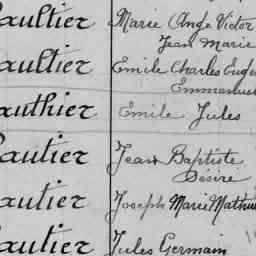 aultier Marie Ange Victor
Jean Marie
aultier Emile Charles Eugè
Emmanuel
authier Emile Jules
autier Jean Baptiste
Désire
autier Joseph Marie Mathu
autier Jules Germain